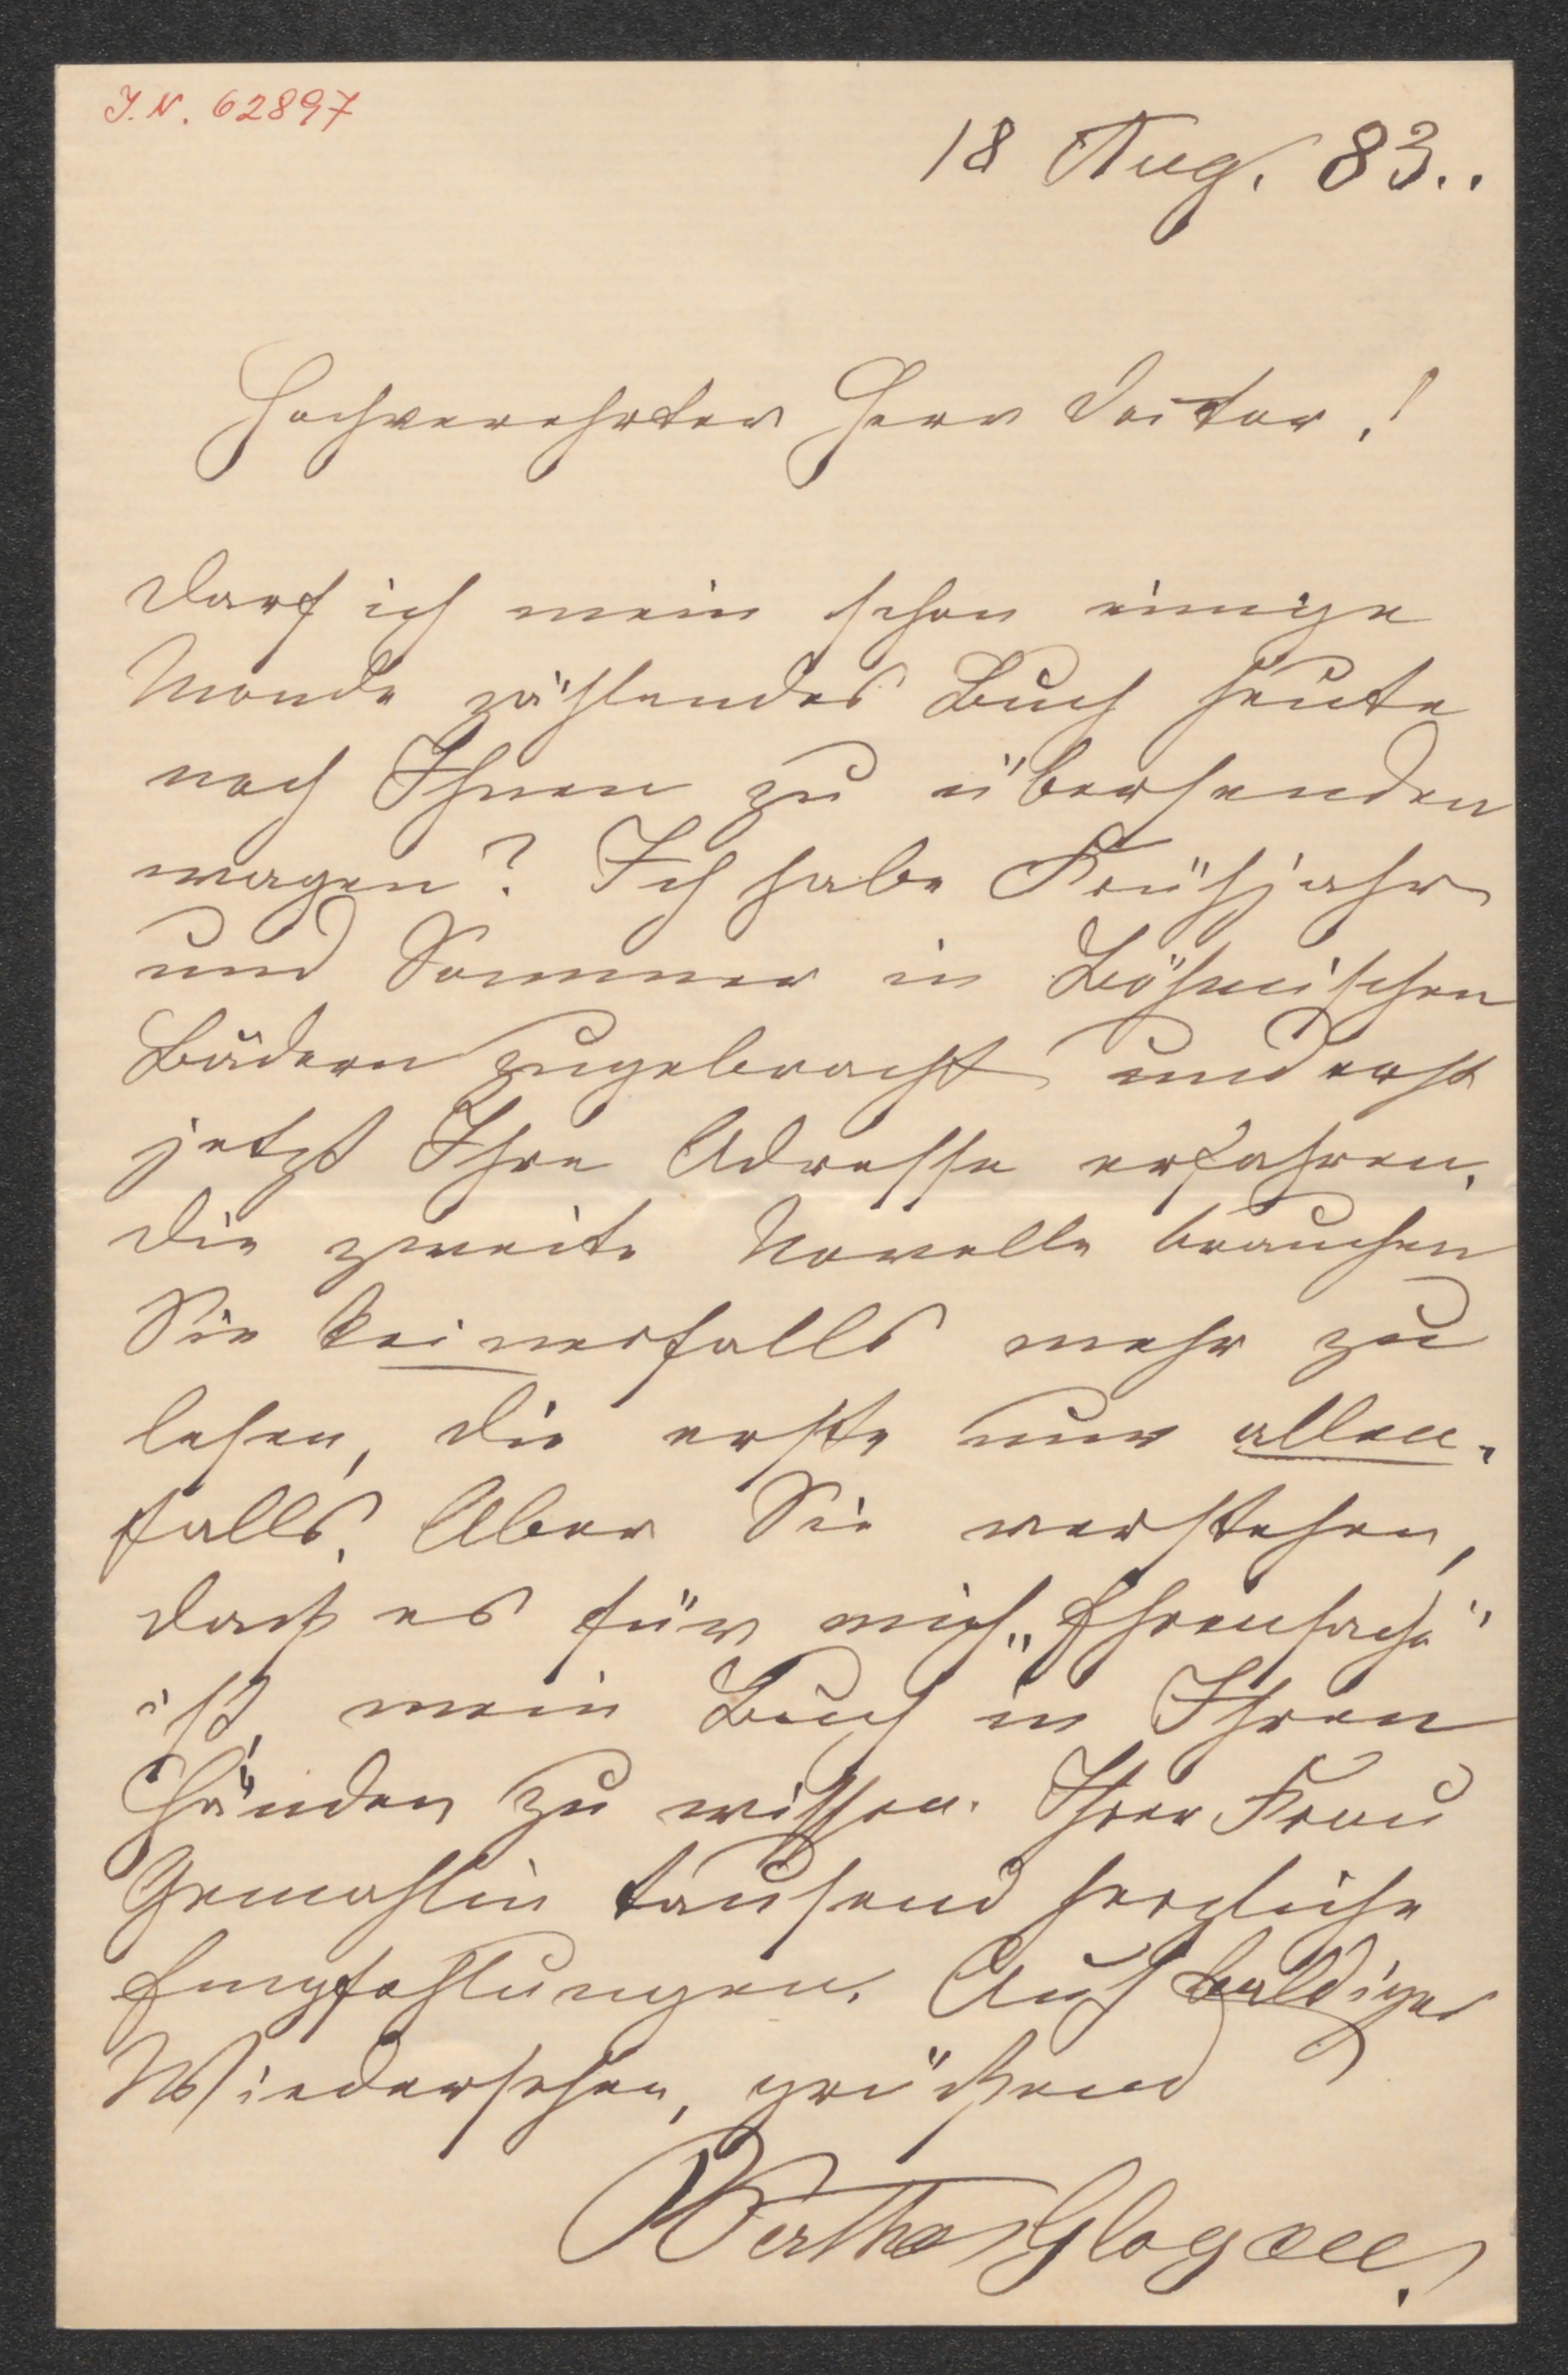 I.N. 62897
18 Aug. 83..
Hochverehrter Herr Doctor!
Darf ich mein schon einige
Monde zählendes Buch heute
noch Ihnen zu übersenden
wagen? Ich habe Frühjahr
und Sommer in Böhmischen
Bädern zugebracht und erst
jetzt Ihre Adresse erfahren.
Die zweite Novelle brauchen
Sie keinesfalls mehr zu
lesen, die erste nur allen-
falls. Aber Sie verstehen,
daß es für mich „Ehrensache"
ist, mein Buch in Ihren
Händen zu wissen. Ihrer Frau
Gemahlin tausend herzliche
Empfehlungen. Auf baldiges
Wiedersehen, grüßend
Bertha Glogau.